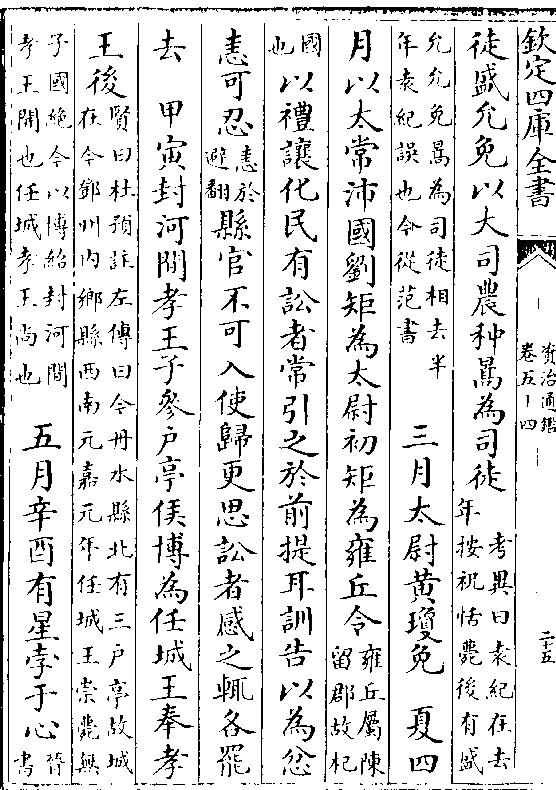 欽定四庫全書
資治通鑑
卷五十四
二十五
徒盛允免以大司農种暠為司徒考異曰袁紀在去年按祝恬薨後有盛
允允免暠為司徒相去半年袁紀誤也今從范書 三月太尉黃瓊免 夏四
月以太常沛國劉矩為太尉初矩為雍丘令雍丘屬陳留郡故杞
國也以禮讓化民有訟者常引之於前提耳訓告以為忿
恚可忍恚於避翻縣官不可入使歸更思訟者感之輒各罷
去 甲寅封河間孝王子參户亭侯博為任城王奉孝
王後賢曰杜預註左傳曰今丹水縣北有三户亭故城在今鄧州内鄉縣西南元嘉元年任城王崇薨無
子國絶今以博紹封河間孝王開也任城孝王尚也 五月辛酉有星孛于心晉書